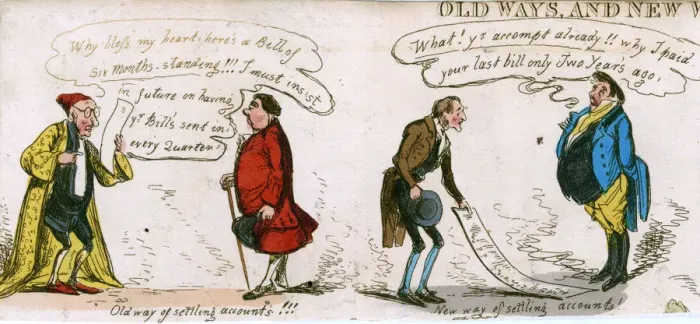 OLD WAYS, AND NEW W
Why bless my heart, here's a Bill of
Six months standing!!! I must insist
in future on having
yr Bill's sent in
every Quarter!
What! yr accompt already!! why I paid
your last bill only Two Year's ago!
Old way of settling accounts.!!!
New way of settling accounts!